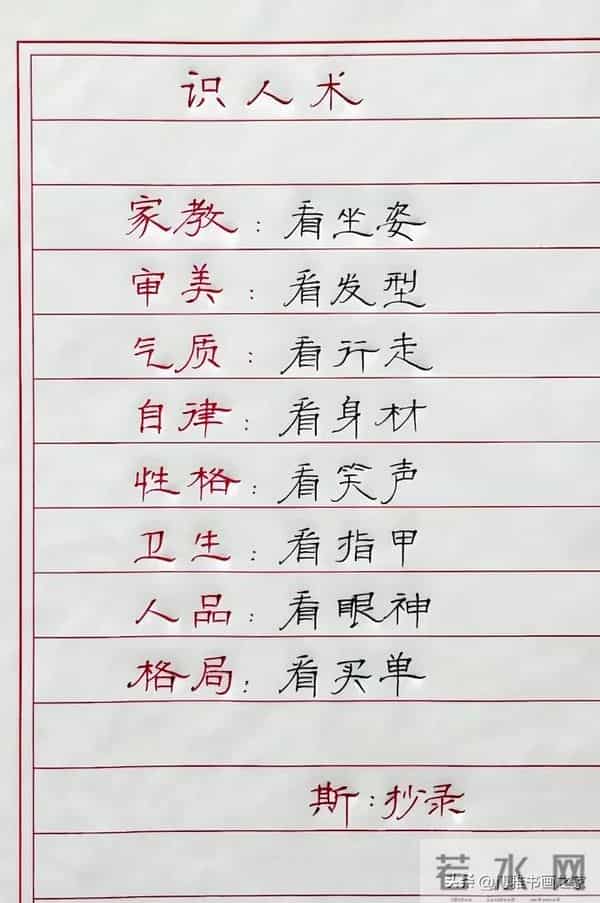 识人术
家教：看坐姿
审美：看发型
气质：看行走
自律：看身材
性格：看笑声
卫生：看指甲
人品：看眼神
格局：看买单
斯：抄录
若水网